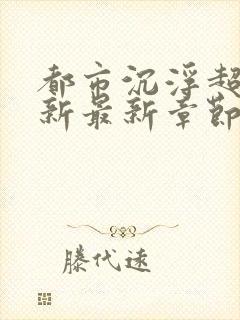 都市沉浮超
新最新章节
滕代远